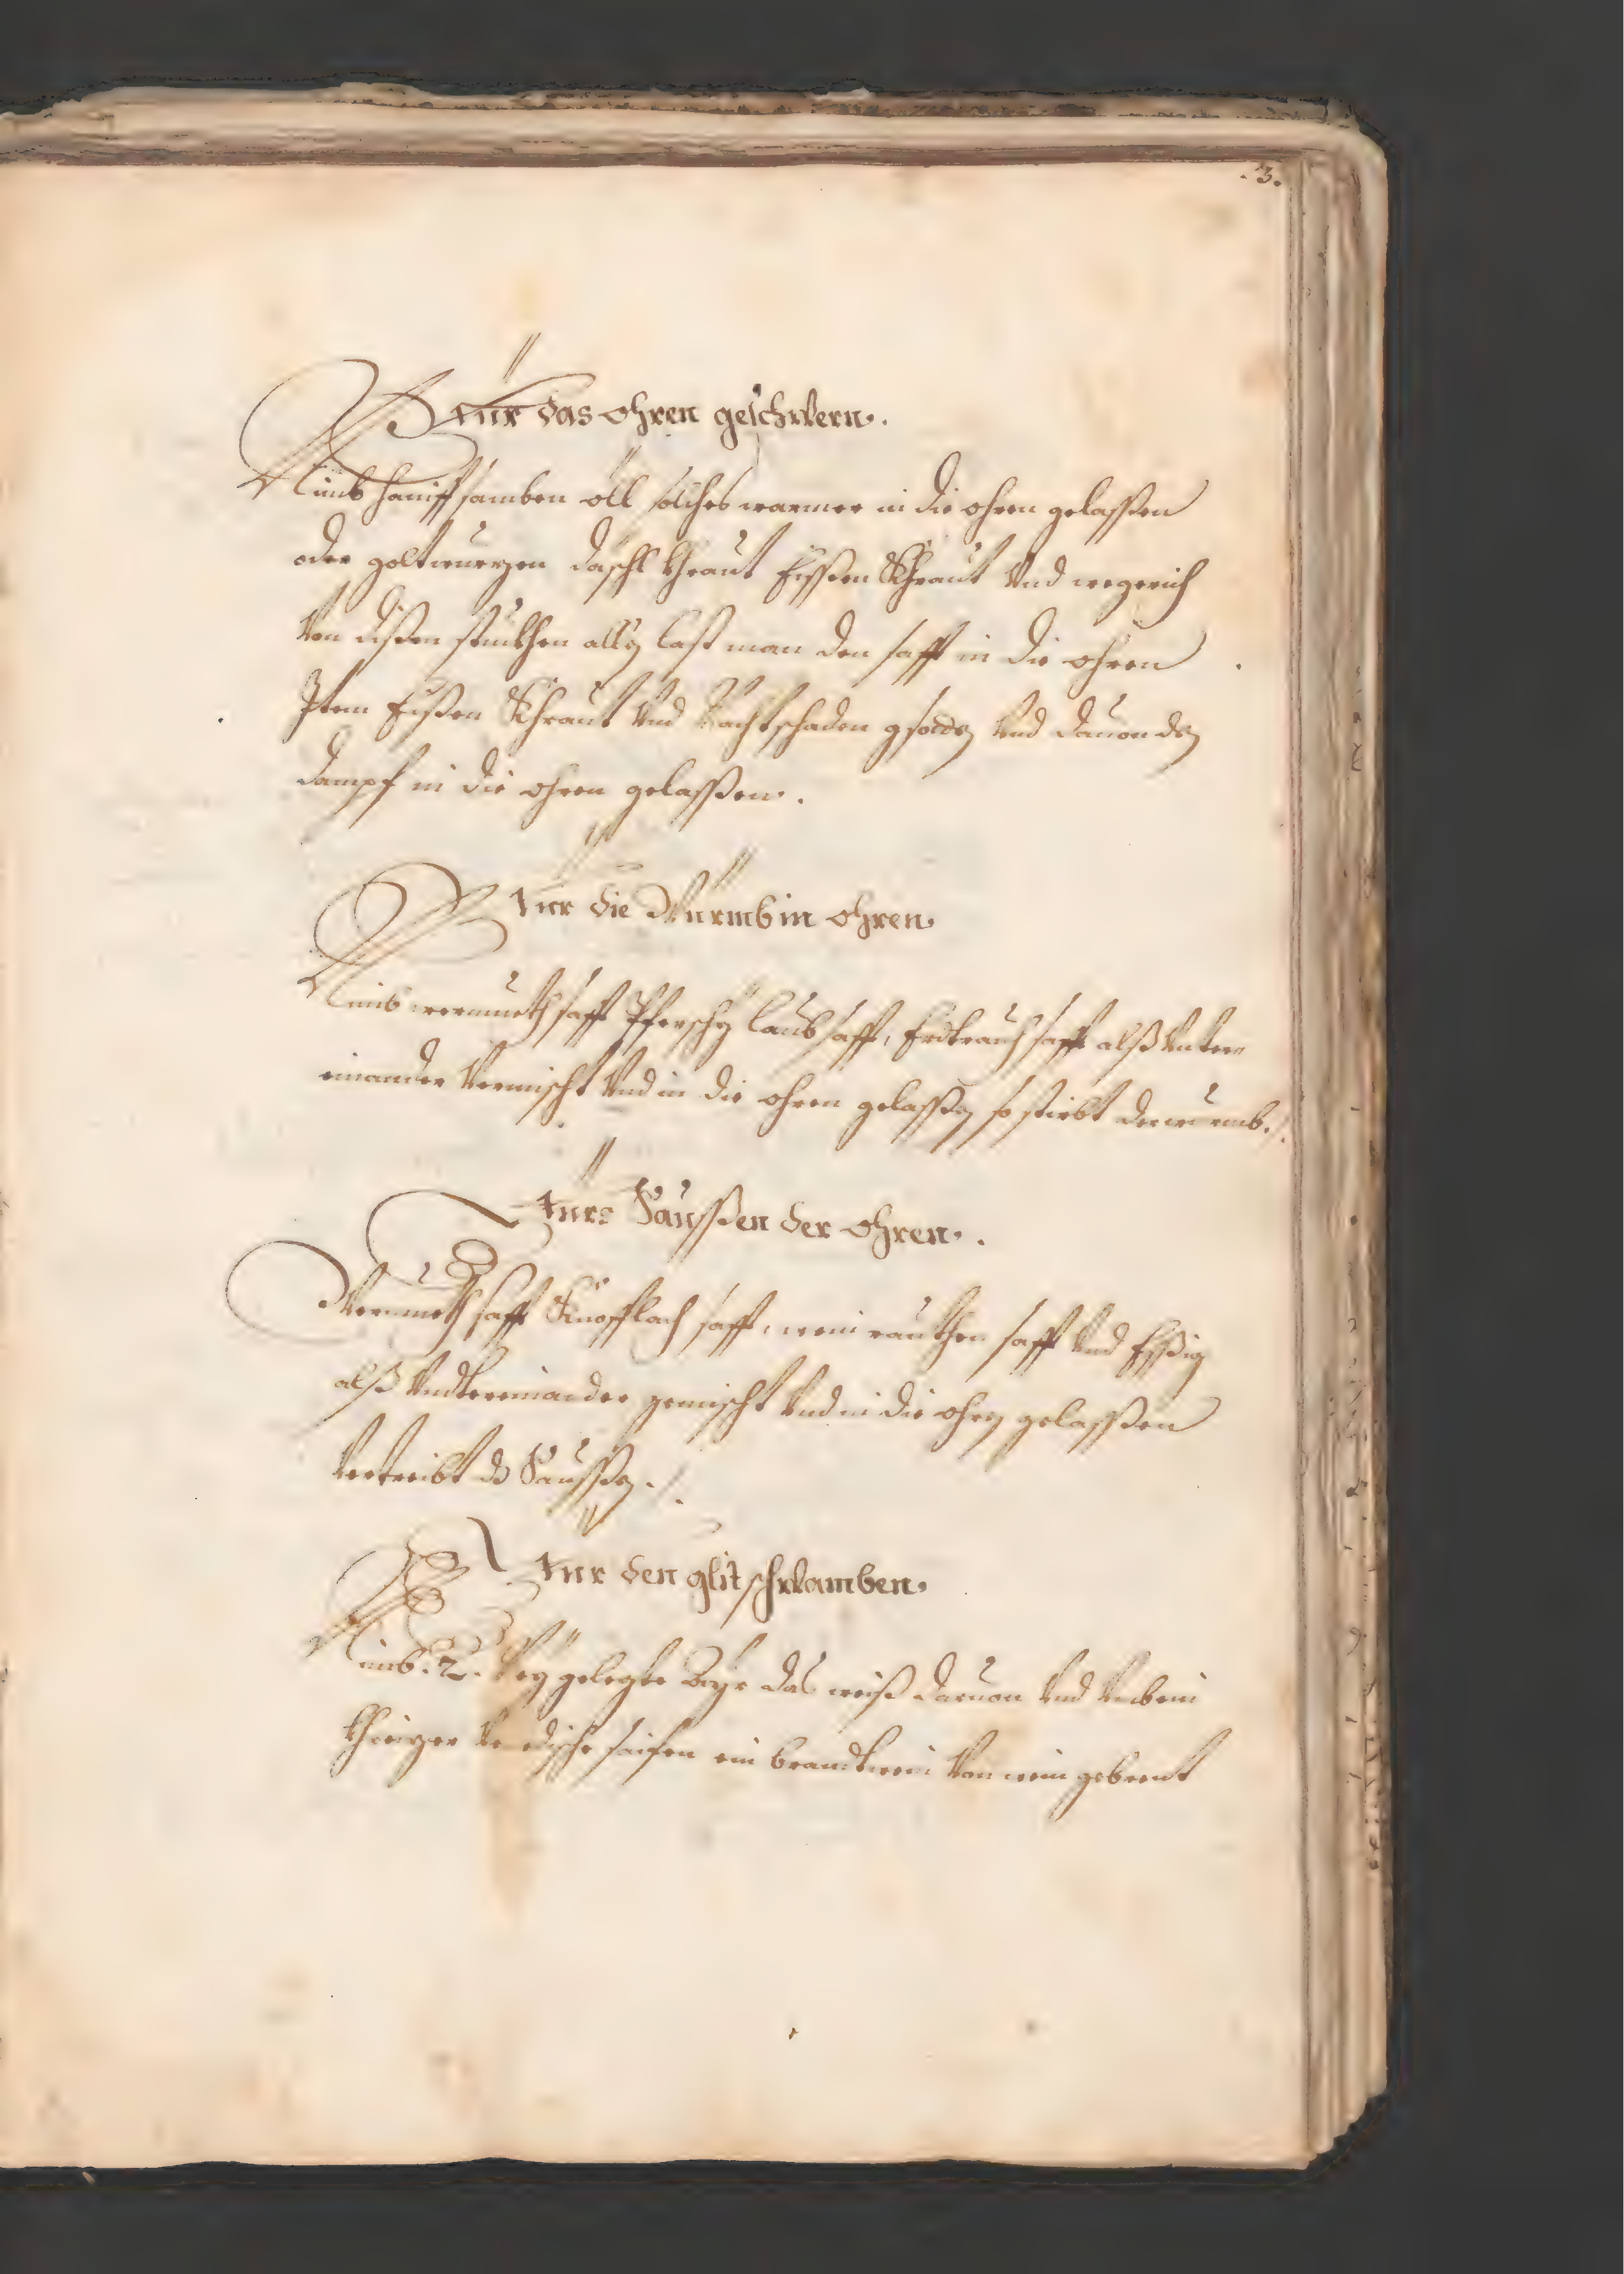 .3.
Für das ohren geschwern.
Nimb haniff samben öll solches warmer in die ohren gelassen
oder goltwurzen daschl Khraut Eissen Khraut Und wegerich
Von dißen stukhen alle last man den safft in die ohren
Item Eißen Khraut Und Nachtschaden gsoden Und dauon den
dampf in die ohren gelassen.
Für die Würmb in ohren
Nimb wermueth safft Pferschy laub safft, Erdtrauch safft alß Unter
einander Vermischt Und in die ohren gelassen so stirbt der wurmb./.
Fürs Saussen der ohren.
Wermueth safft Knofflach safft, weinrauthen safft Und Essig
alß Undtereinander gemischt Und in die ohren gelassen
Vertreibt ds Saussen./.
Für den glitschwamben.
Nimb .2. Ney gelegte Ayr das weiß daruon Und Umb ein
Khreizer Venedische saifen ein brandtwein Von wein gebrent